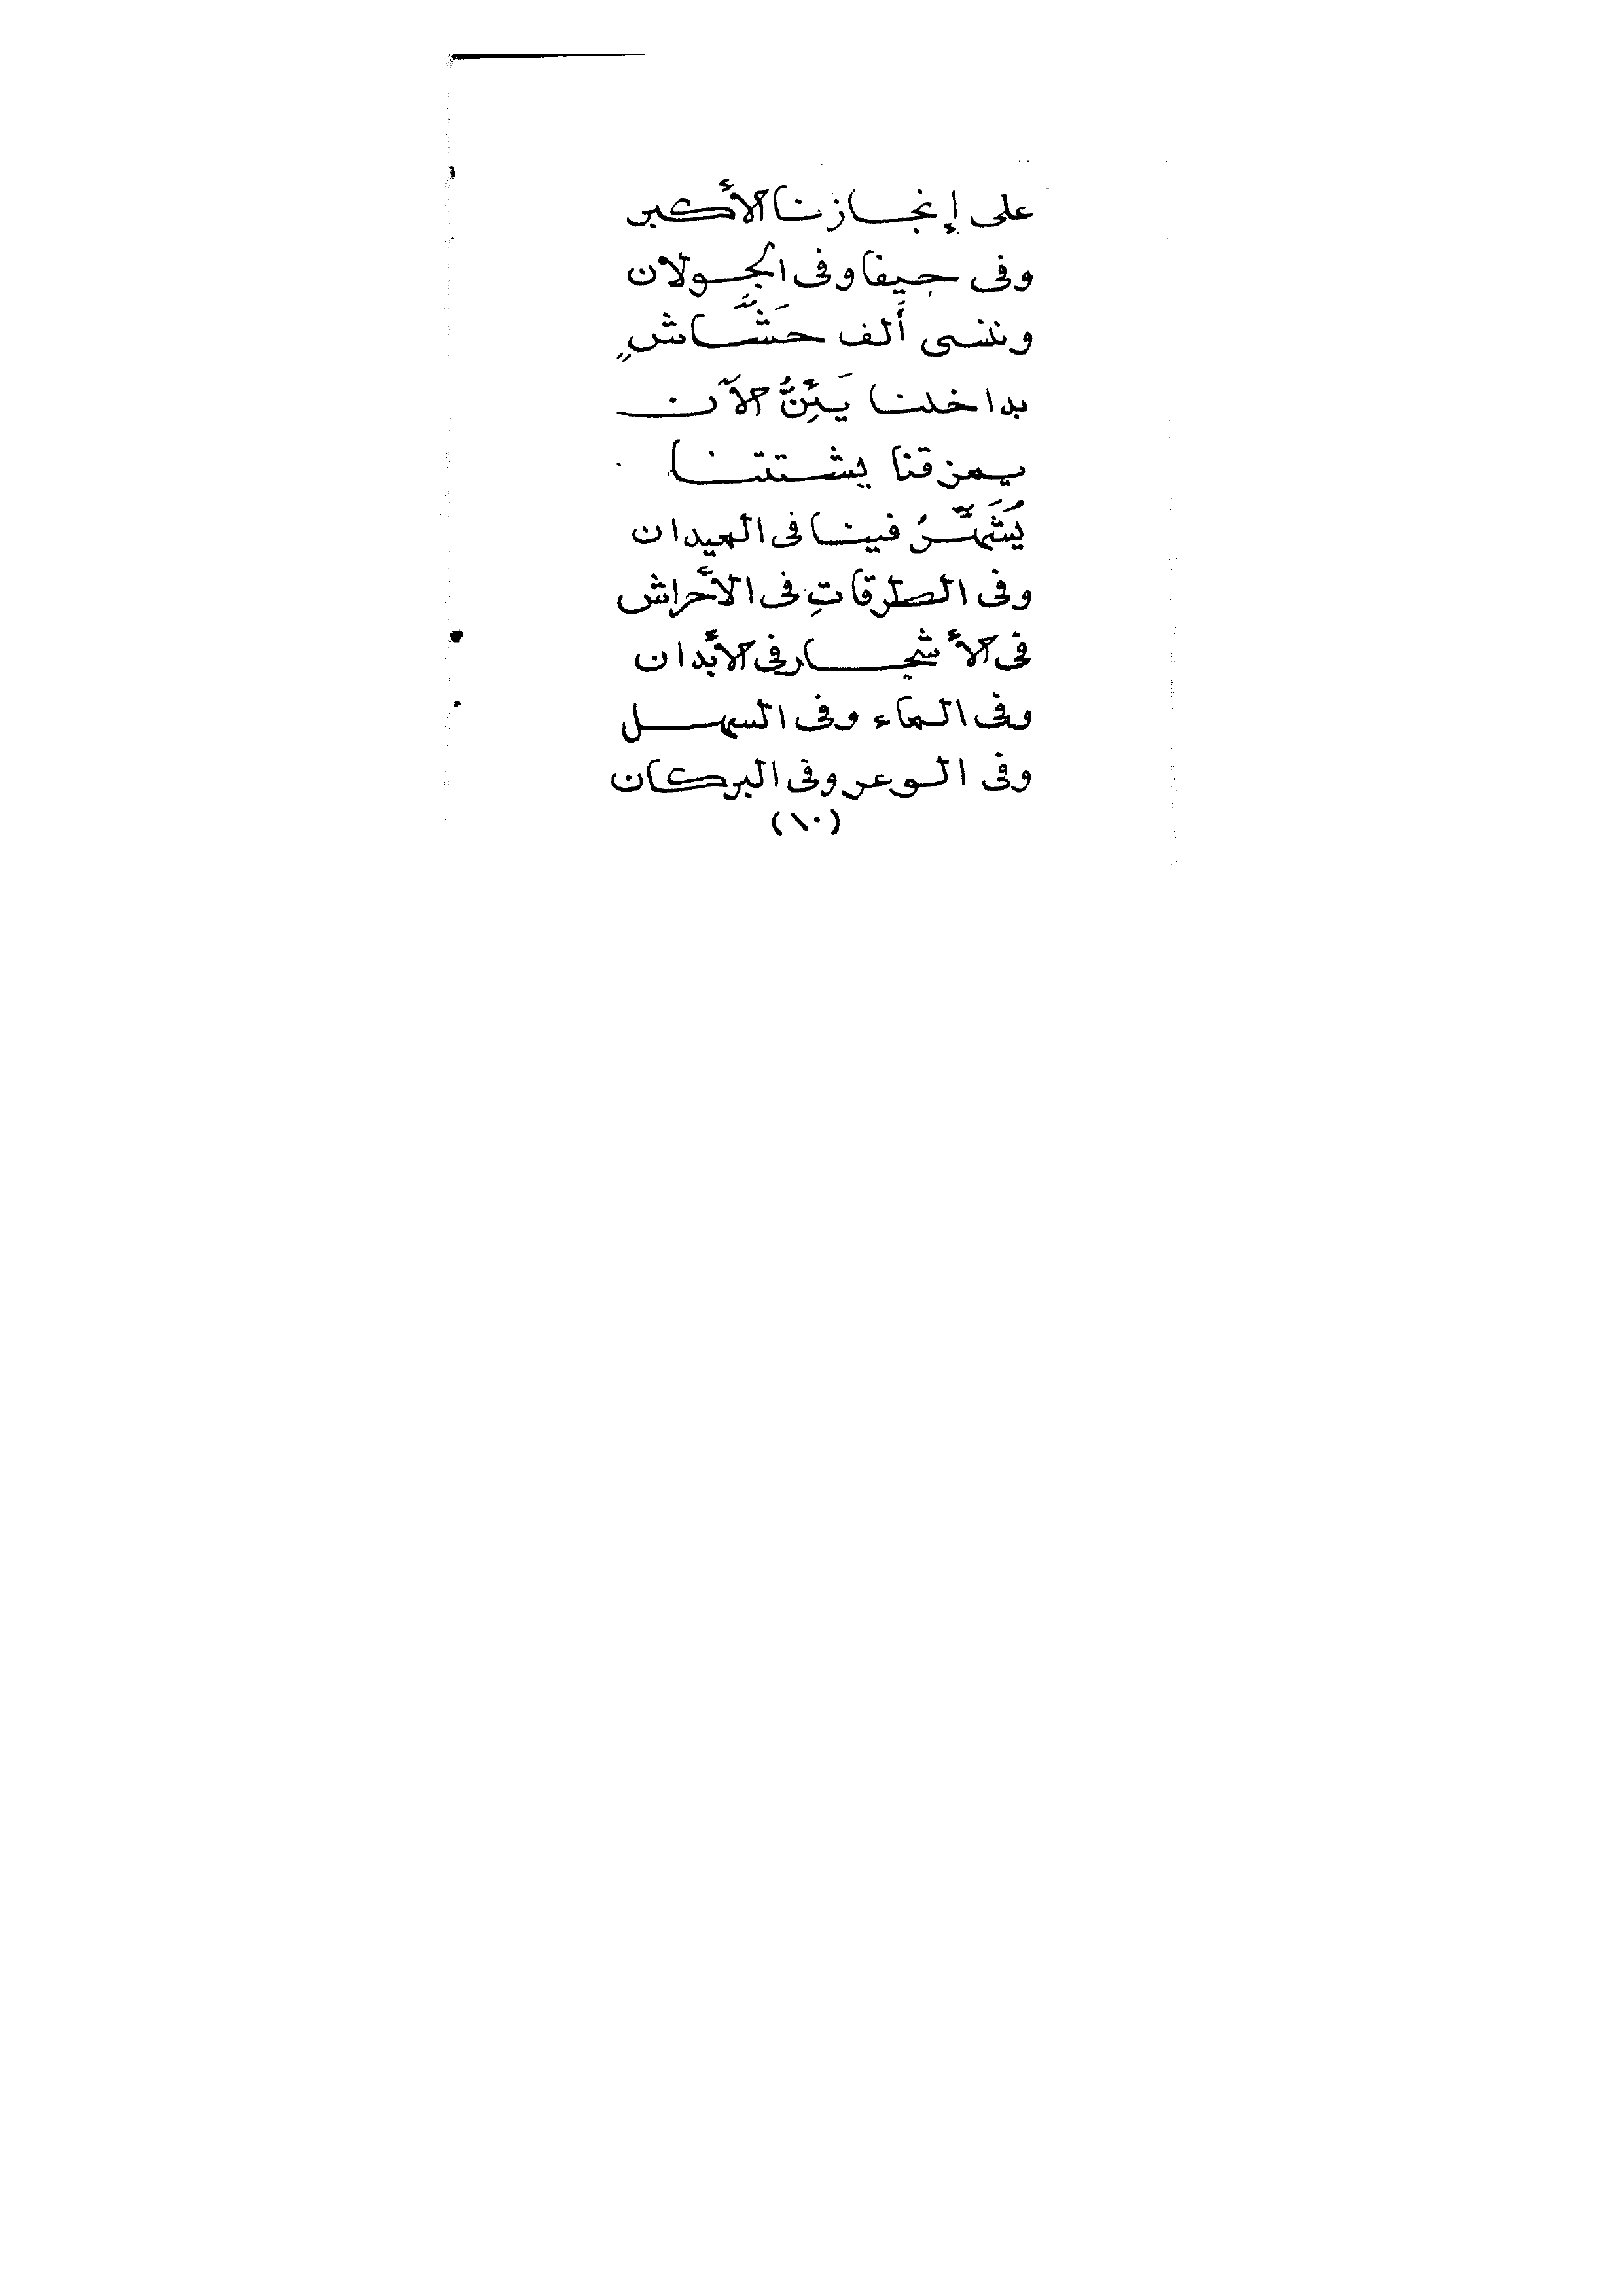 على إنجازنا الأكبر
وفى جيفا وفى الجولان
وننسى ألف حَشَّاشٍ
بداخلنا يَئِنُّ الآن
يمزقنا يشتتنا
يُشَمِّسُ فينا فى الميدان
وفى الطرقاتِ فى الأحراش
فى الأشجار فى الأبدان
وفى الماء وفى السهل
وفى الوعر وفى البركان
(١٠)